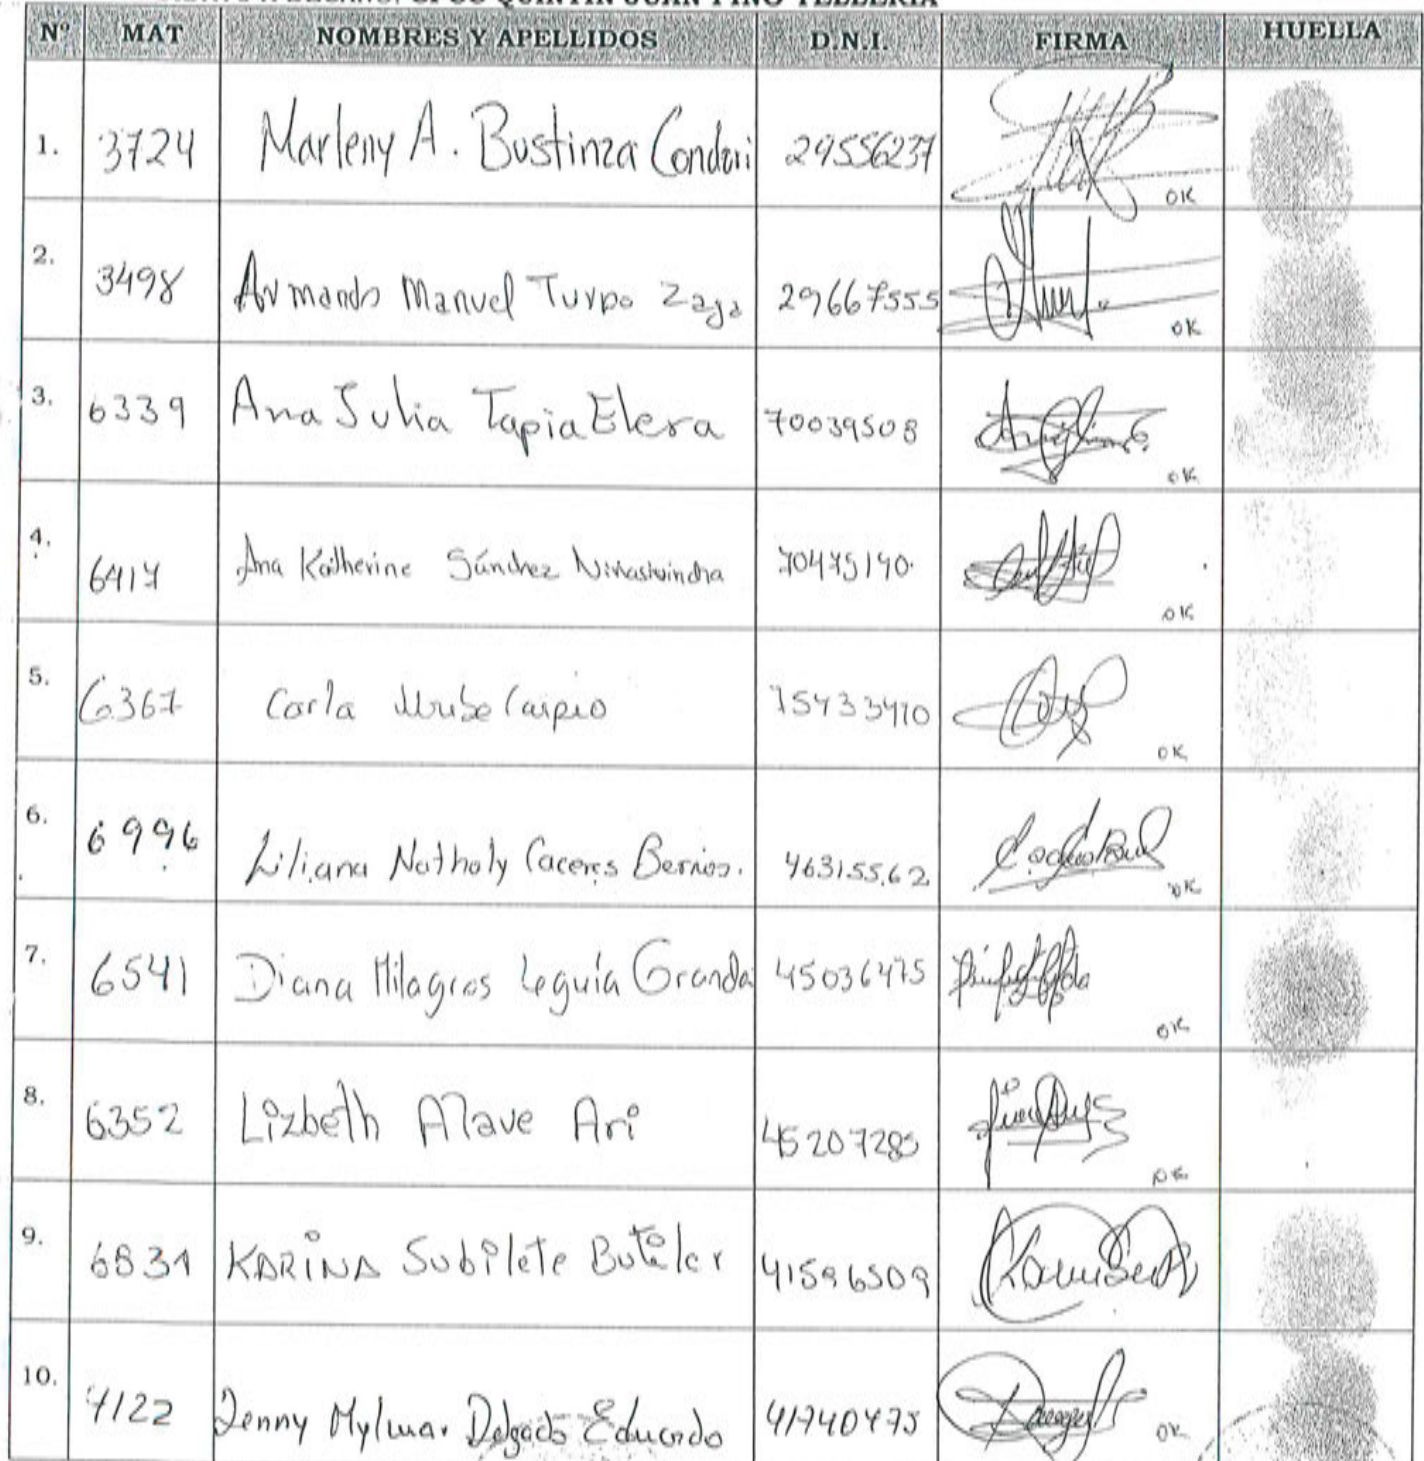 QUINTIN JUAN PINO TELLERIA
Nº MAT NOMBRES Y APELLIDOS D.N.I. FIRMA HUELLA
1. 3724 Marleny A. Bustinza Condori 29556237 OK
2. 3498 Armando Manuel Turpo Zaga 29667555 OK
3. 6339 Ana Julia Tapia Elera 70039508 OK
4. 6417 Ana Katherine Sánchez 70475140 OK
5. 6367 Carla Uribe Carpio 75433470 OK
6. 6996 Liliana Nathaly Caceres Berrios. 46315562 OK
7. 6541 Diana Milagros Leguía Granda 45036475 OK
8. 6352 Lizbeth Alave Ari 45207285 OK
9. 6831 KARINA Subilete Buteler 41596509
10. 7122 Jenny Mylmar Delgado Eduardo 41740475 OK